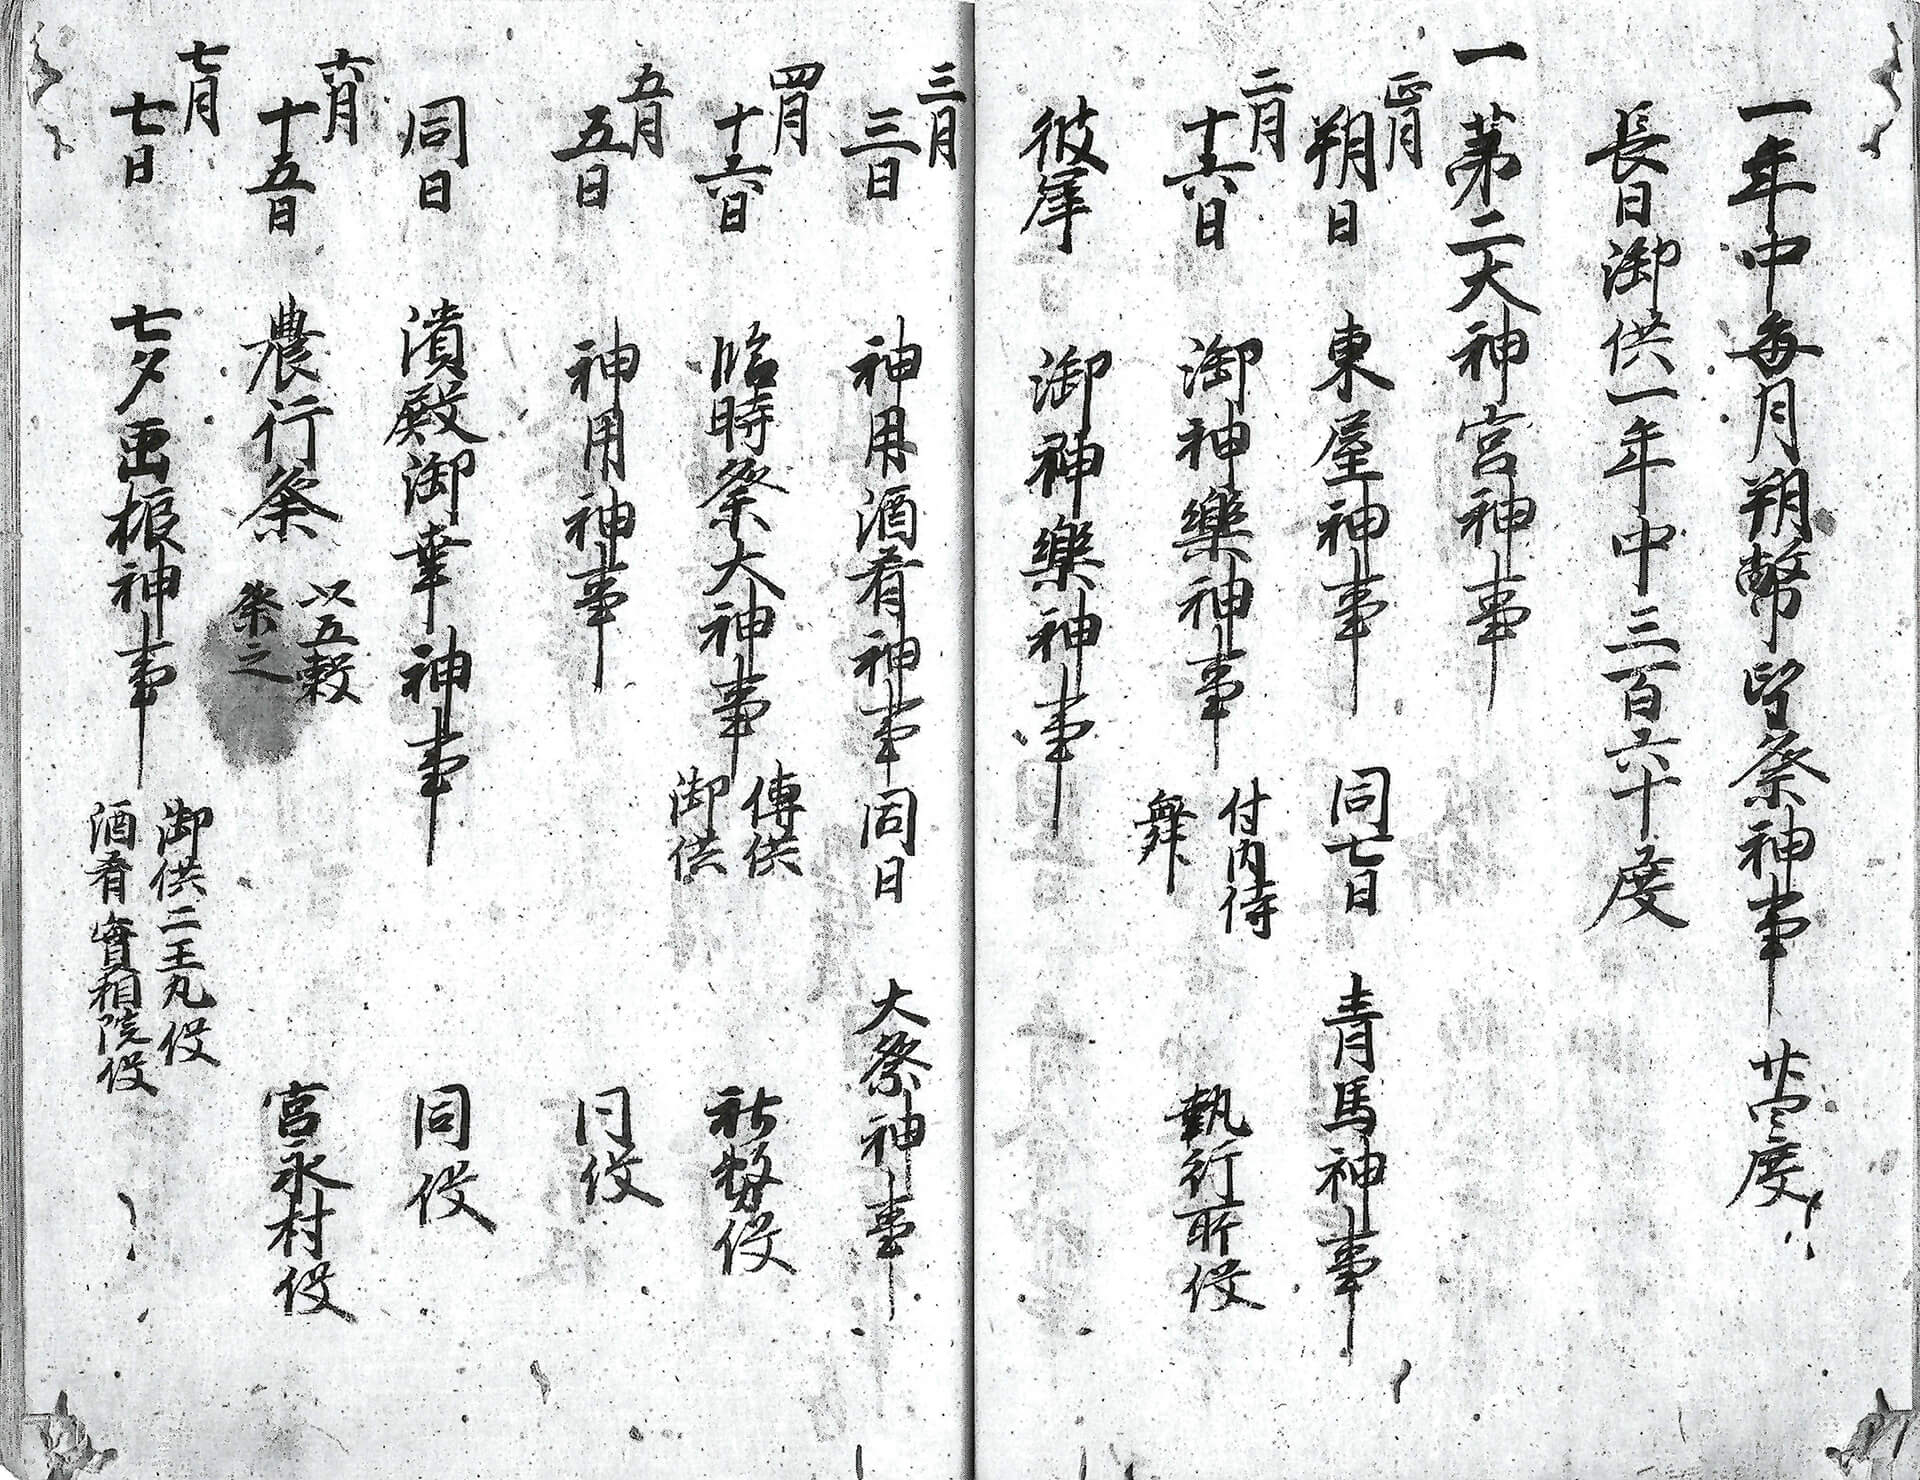 一年中毎月朔幣望祭神事　廿四度
長日御供一年中三百六十度
一 第二大神宮神事
正月朔日　東屋神事　同七日　青馬神事
二月十六日　御神樂神事　付内侍舞　執行所役
彼岸　御神樂神事
三月三日　神用酒肴神事　同日　大祭神事
四月十六日　臨時祭大神事　傳供御供　社務役
五月五日　神用神事　同役
同日　濱殿御幸神事　同役
六月十五日　農行祭　以五穀祭之　宮永村役
七月七日　七夕神事　御供二王丸役　酒肴實相院役